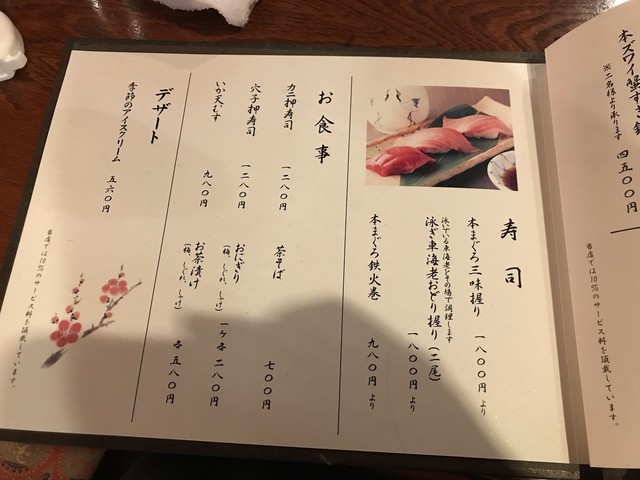 本ズワイ蟹すき鍋
※二名様より承ります
四五〇〇円
当店では10%のサービス料を頂戴しています。
寿司
本まぐろ三味握り 一八〇〇円より
泳いでいる車海老をその場で調理します
泳ぎ車海老おどり握り(二尾) 一八〇〇円より
本まぐろ鉄火巻 九八〇円より
お食事
カニ押寿司 一二八〇円
穴子押寿司 一二八〇円
いか天むす 九八〇円
茶そば 七〇〇円
おにぎり 一ケ各二八〇円
(梅、しぐれ、しゃけ)
お茶漬け 各五八〇円
(梅、しぐれ、しゃけ)
デザート
季節のアイスクリーム 五六〇円
当店では10%のサービス料を頂戴しています。